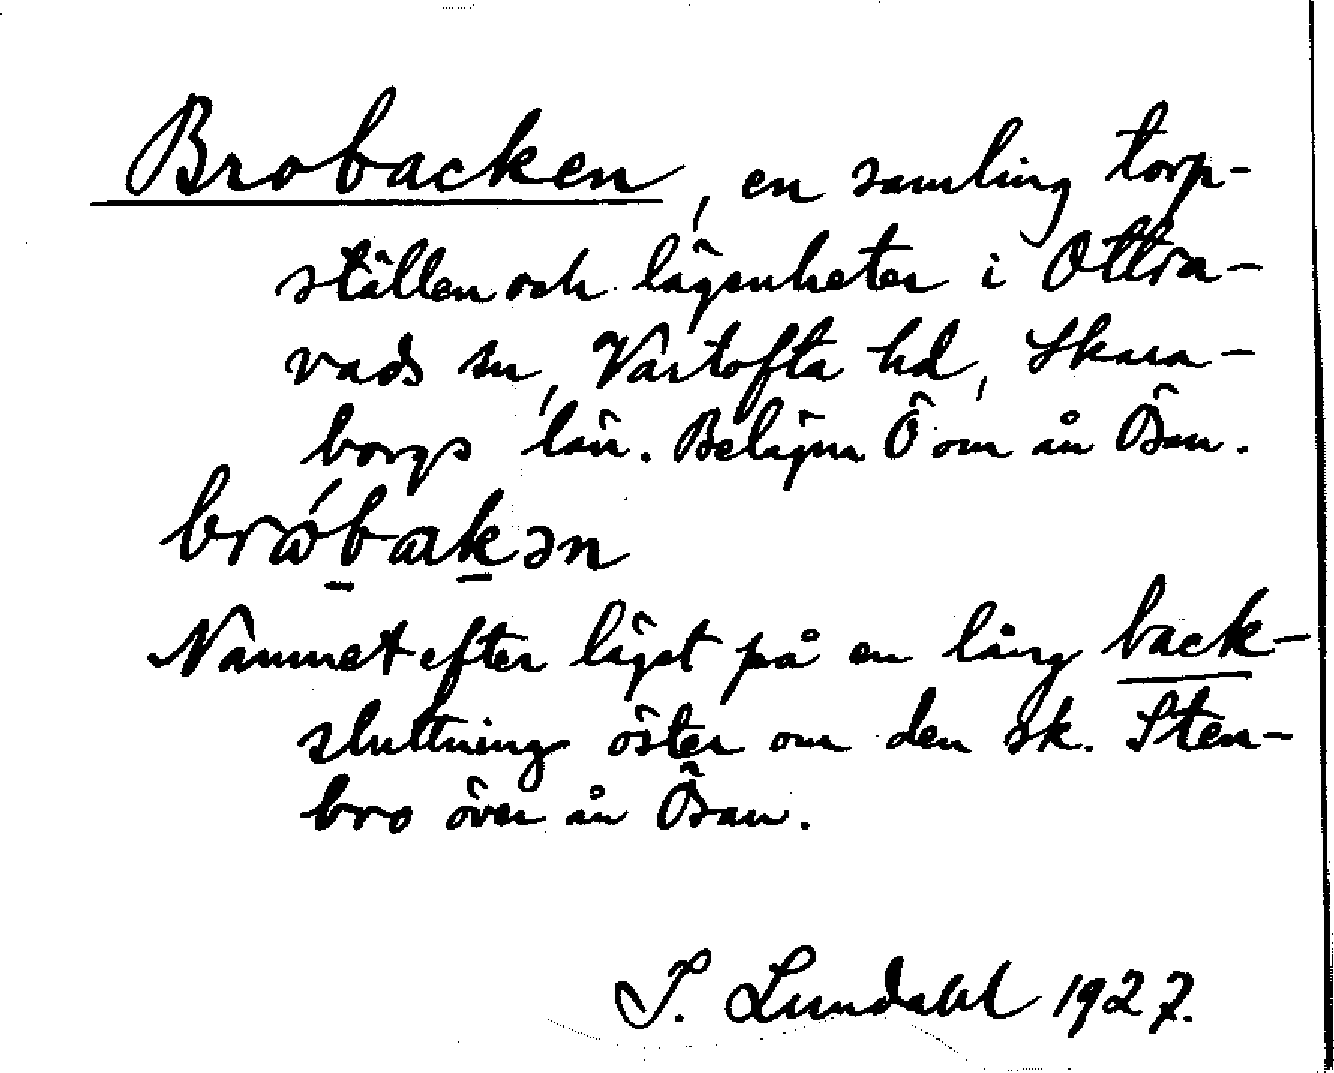 Brobacken, en samling torp-
ställen och lägenheter i Ottra-
vads sn, Vartofta hd, Skara-
borgs län. Belägna Ö om ån Ösan.
brώbakən
Namnet efter läget på en lång back-
sluttning öster om den sk. Sten-
bro över ån Ösan.
I. Lundahl 1927.